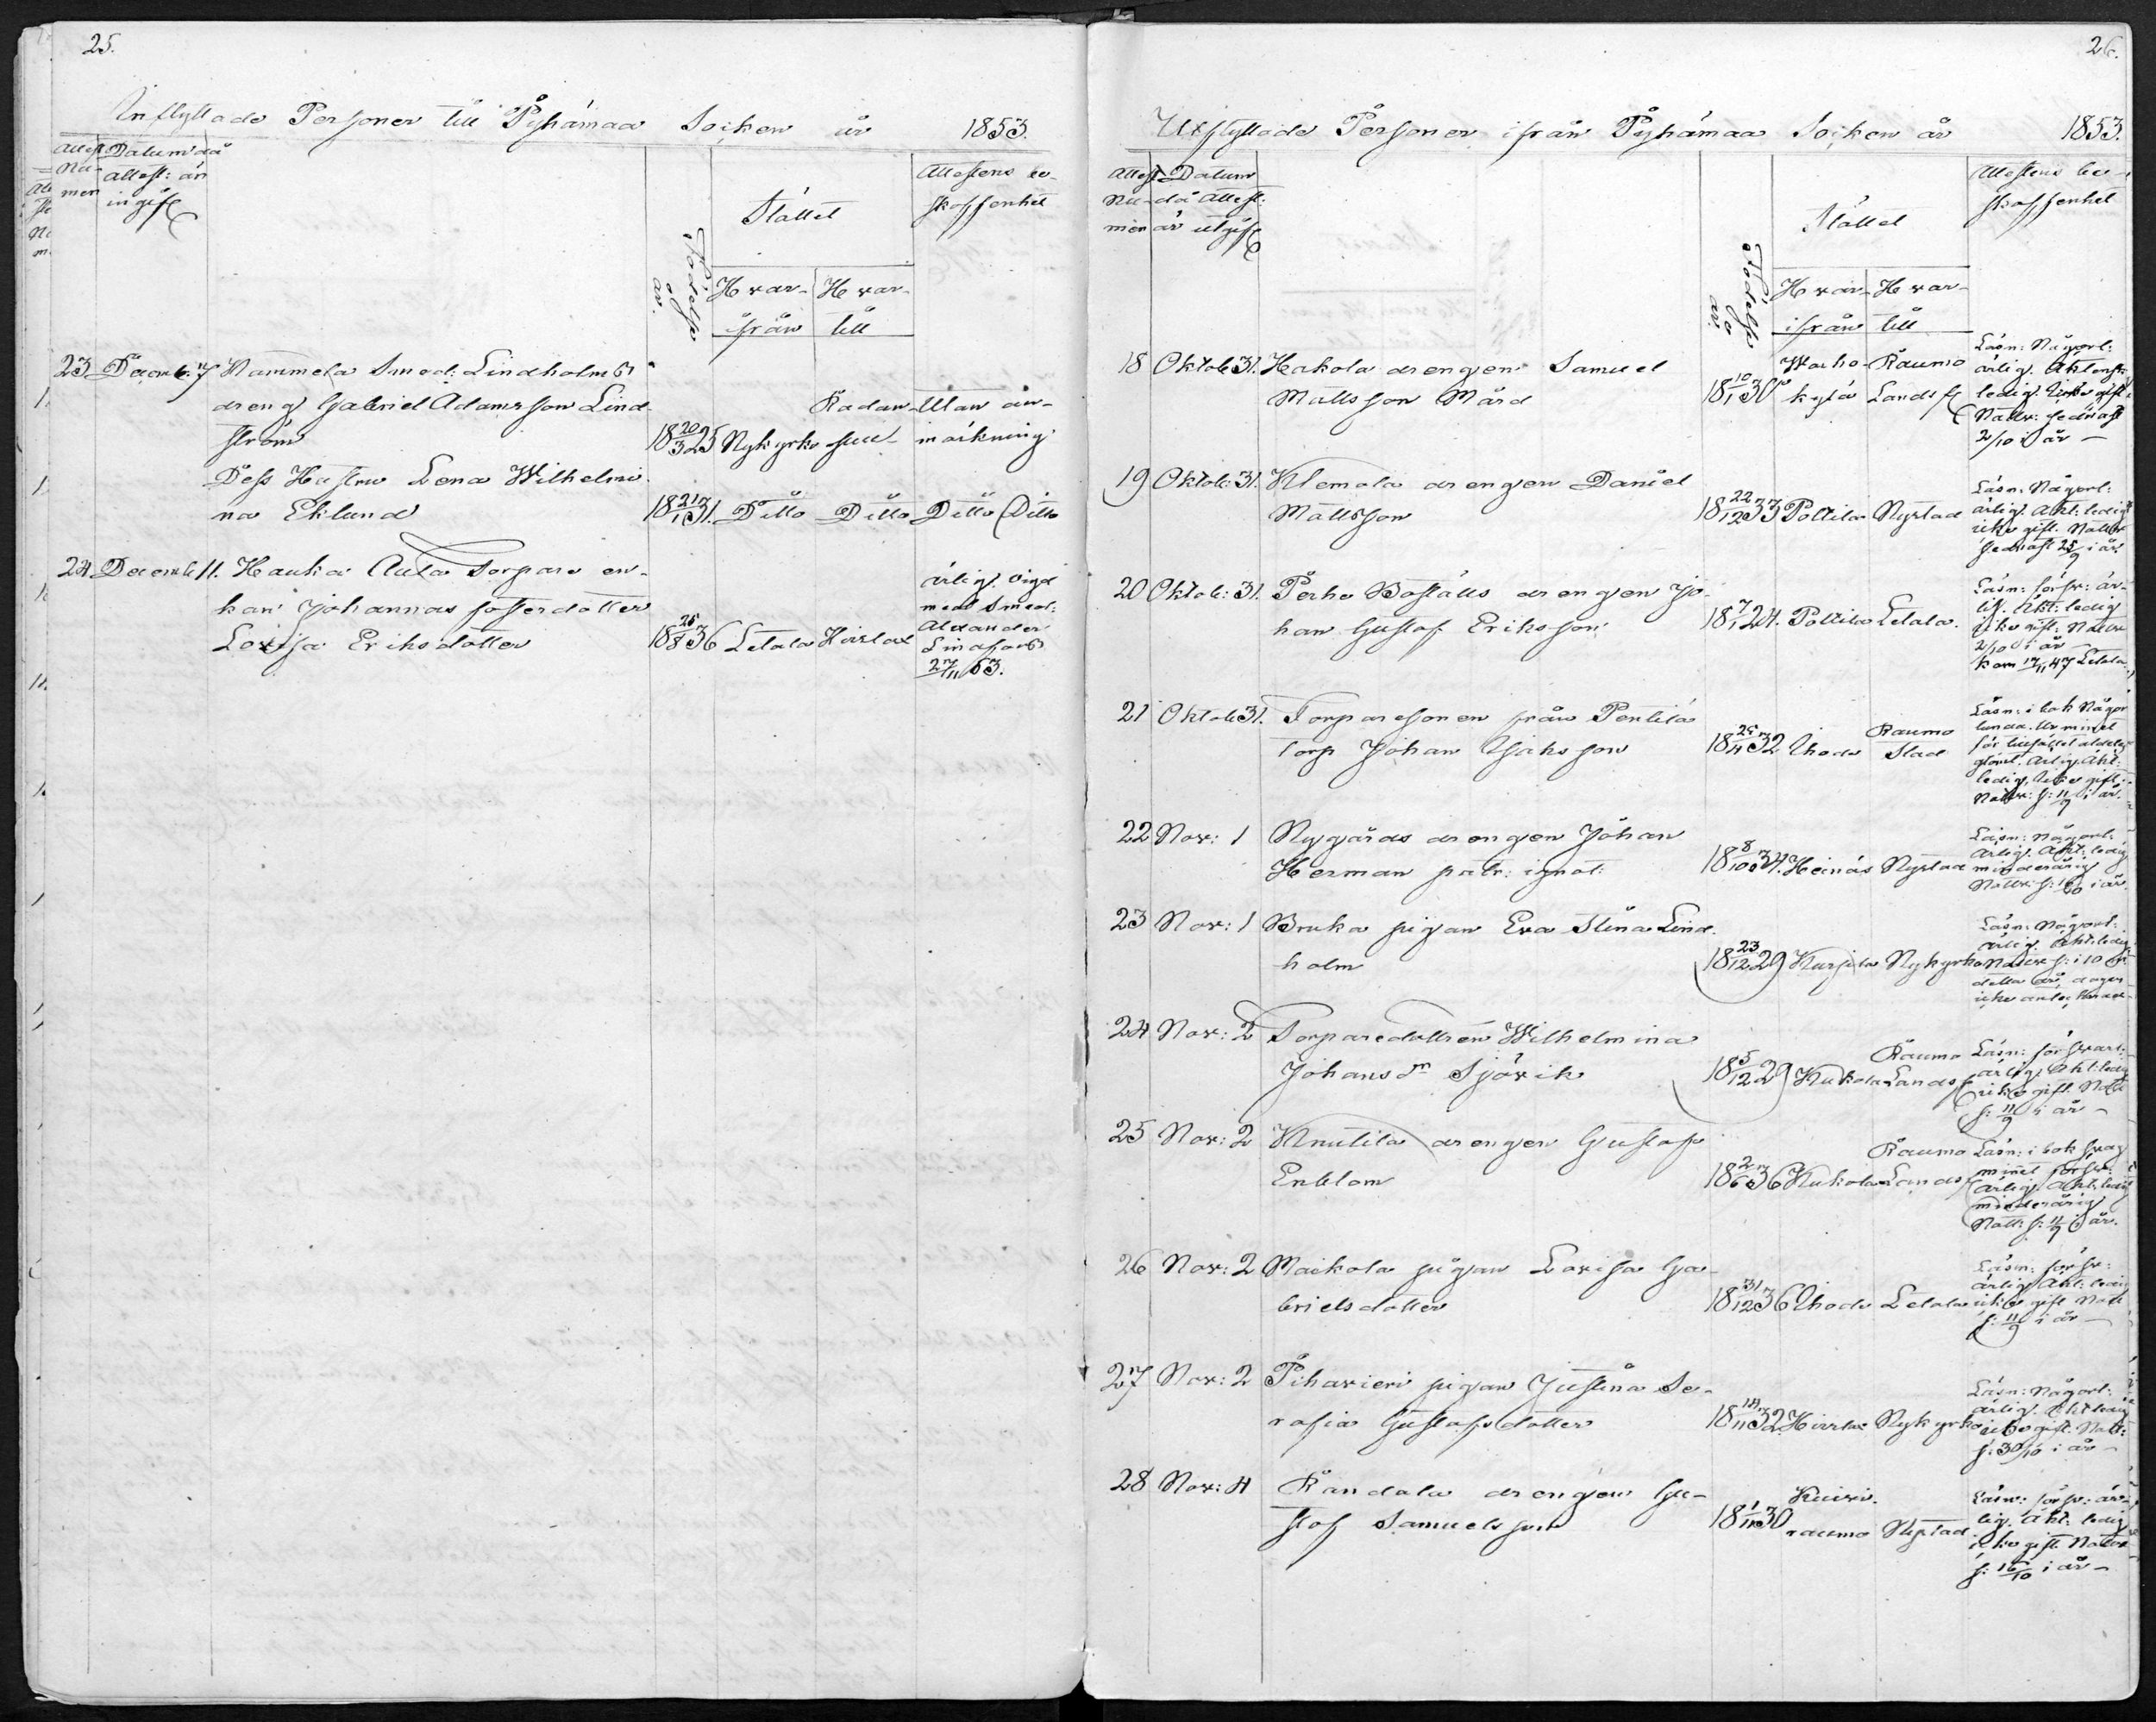 25.
Inflyttade Personer till Pyhämaa Socken år 1853.
Attest Nu- mer
Datum då attest: är ingift
Födelse år.
Stället
Hvar- ifrån
Hvar- till
Attestens be- skaffenhet
23 Decemb. 7 Kammela Smed: Lindholms
dreng Gabriel Adamsson Lind-
ström 18 20/3 25 Nykyrko Radan- suu Utan an- märkning
Dess Hustru Lena Wilhelmi-
na Eklund 18 21/1 31. Ditto Ditto Ditto Ditto
24 Decemb 11. Hauka Aula Torpare en-
kan Johannas fosterdotter
Lovisa Eriksdotter 18 25/8 36 Letala Hirslax
ärlig. vigd
med Smed:
Alexander
Lindfors
27/11 53.
26.
Utflyttade Personer ifrån Pyhämaa Socken år 1853.
Attest Nu- mer
Datum då Attest: är utgift
Födelse år.
Stället
Hvar- ifrån
Hvar- till
Attestens be- skaffenhet
18 Oktob 31. Hakola drengen Samuel
Mattsson Mård 18 10/1 30 Warho- kylä Raumo Lands f
Läsn: Någorl:
ärlig. Aktensk:
ledig. Icke gift.
Nattv: sednast
2/10 i år —
19 Oktob: 31. Klemola drengen Daniel
Mattsson 18 22/12 33 Pollila Nystad
Läsn: Någorl:
ärlig. Äkt: ledig
icke gift. Nattv
sednast 25/9 i år
20 Oktob: 31. Perho Boställs drengen Jo-
han Gustaf Eriksson 18 7/1 24. Pollila Letala.
Läsn: försv: är-
lig. Äkt: ledig
Icke gift. Nattv
2/10 i år —
kom 17/11 47 Letala
21 Oktob 31. Torparesonen från Pentilä
torp Johan Isaksson 18 25/11 32 Ihode Raumo Stad
Läsn: i bok Någor
lunda. Ur minnet
för tillfället alldeles
glömt. Ärlig. Äkt:
ledig, Icke gift.
Nattv: s: 11/9 i år.
22 Nov: 1 Nygårds drengen Johan
Herman patr: ignot: 18 8/10 34. Heinäs Nystad
Läsn: Någorl:
Ärlig. Äkt: ledig
minderårig
Nattv: s: 16/10 i år.
23 Nov: 1 Bruka pigan Eva Stina Lind-
holm 18 23/12 29 Kursila Nykyrko
Läsn: Någorl:
ärlig. Äkt: ledig
Nattv s: i 10
detta år, dagen
icke
24 Nov: 2 Torparedottren Wilhelmina
Johansdr Sjövik 18 5/12 29 Kukola Raumo Lands f
Läsn: försvarl:
ärlig. Äkt: ledig
icke gift. Nattv
s: 11/9 i år —
25 Nov: 2 Knutila drengen Gustaf
Enblom 18 2/6 36 Kukola Raumo Lands f
Läsn: i bok svag
minnet försv:
ärlig. Äkt: ledig
minderårig
Nattv: s: 11/9 i år.
26 Nov: 2 Maikola pigan Lovisa Ga-
brielsdotter 18 31/12 36 Ihode Letala
Läsn: försv:
ärlig. Äkt: ledig
icke gift Nattv
s: 11/9 i år —
27 Nov: 2 Pihavieri pigan Justina Se-
rafia Gustafsdotter 18 14/11 32. Hirslax Nykyrko
Läsn: Någorl:
ärlig. Äkt ledig
icke gift. Nattv:
s: 30/10 i år —
28 Nov: 4 Randala drengen Gu-
staf Samuelsson 18 1/11 30 Kuivi- raumo Nystad
Läsn: försv: är-
lig. Äkt: ledig
icke gift. Nattv
s: 16/10 i år —